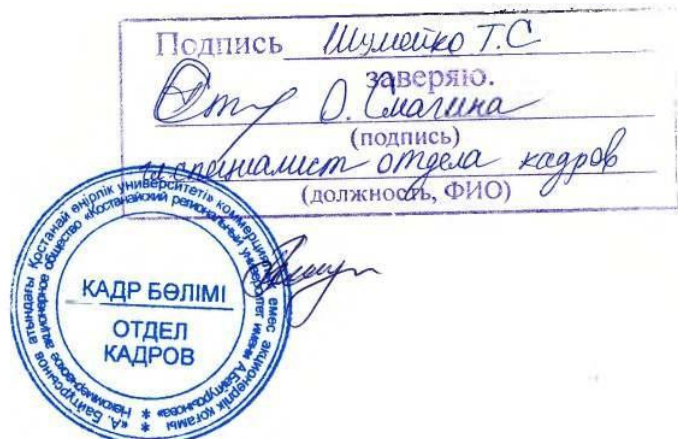 Подпись Шумейко Т.С
заверяю.
О. Смагина
(подпись)
гл специалист отдела кадров
(должность, ФИО)
«А. Байтұрсынов атындағы Қостанай өңірлік университеті» коммерциялық емес акционерлік қоғамы
Некоммерческое акционерное общество «Костанайский региональный университет имени А.Байтурсынова»
КАДР БӨЛІМІ
ОТДЕЛ
КАДРОВ